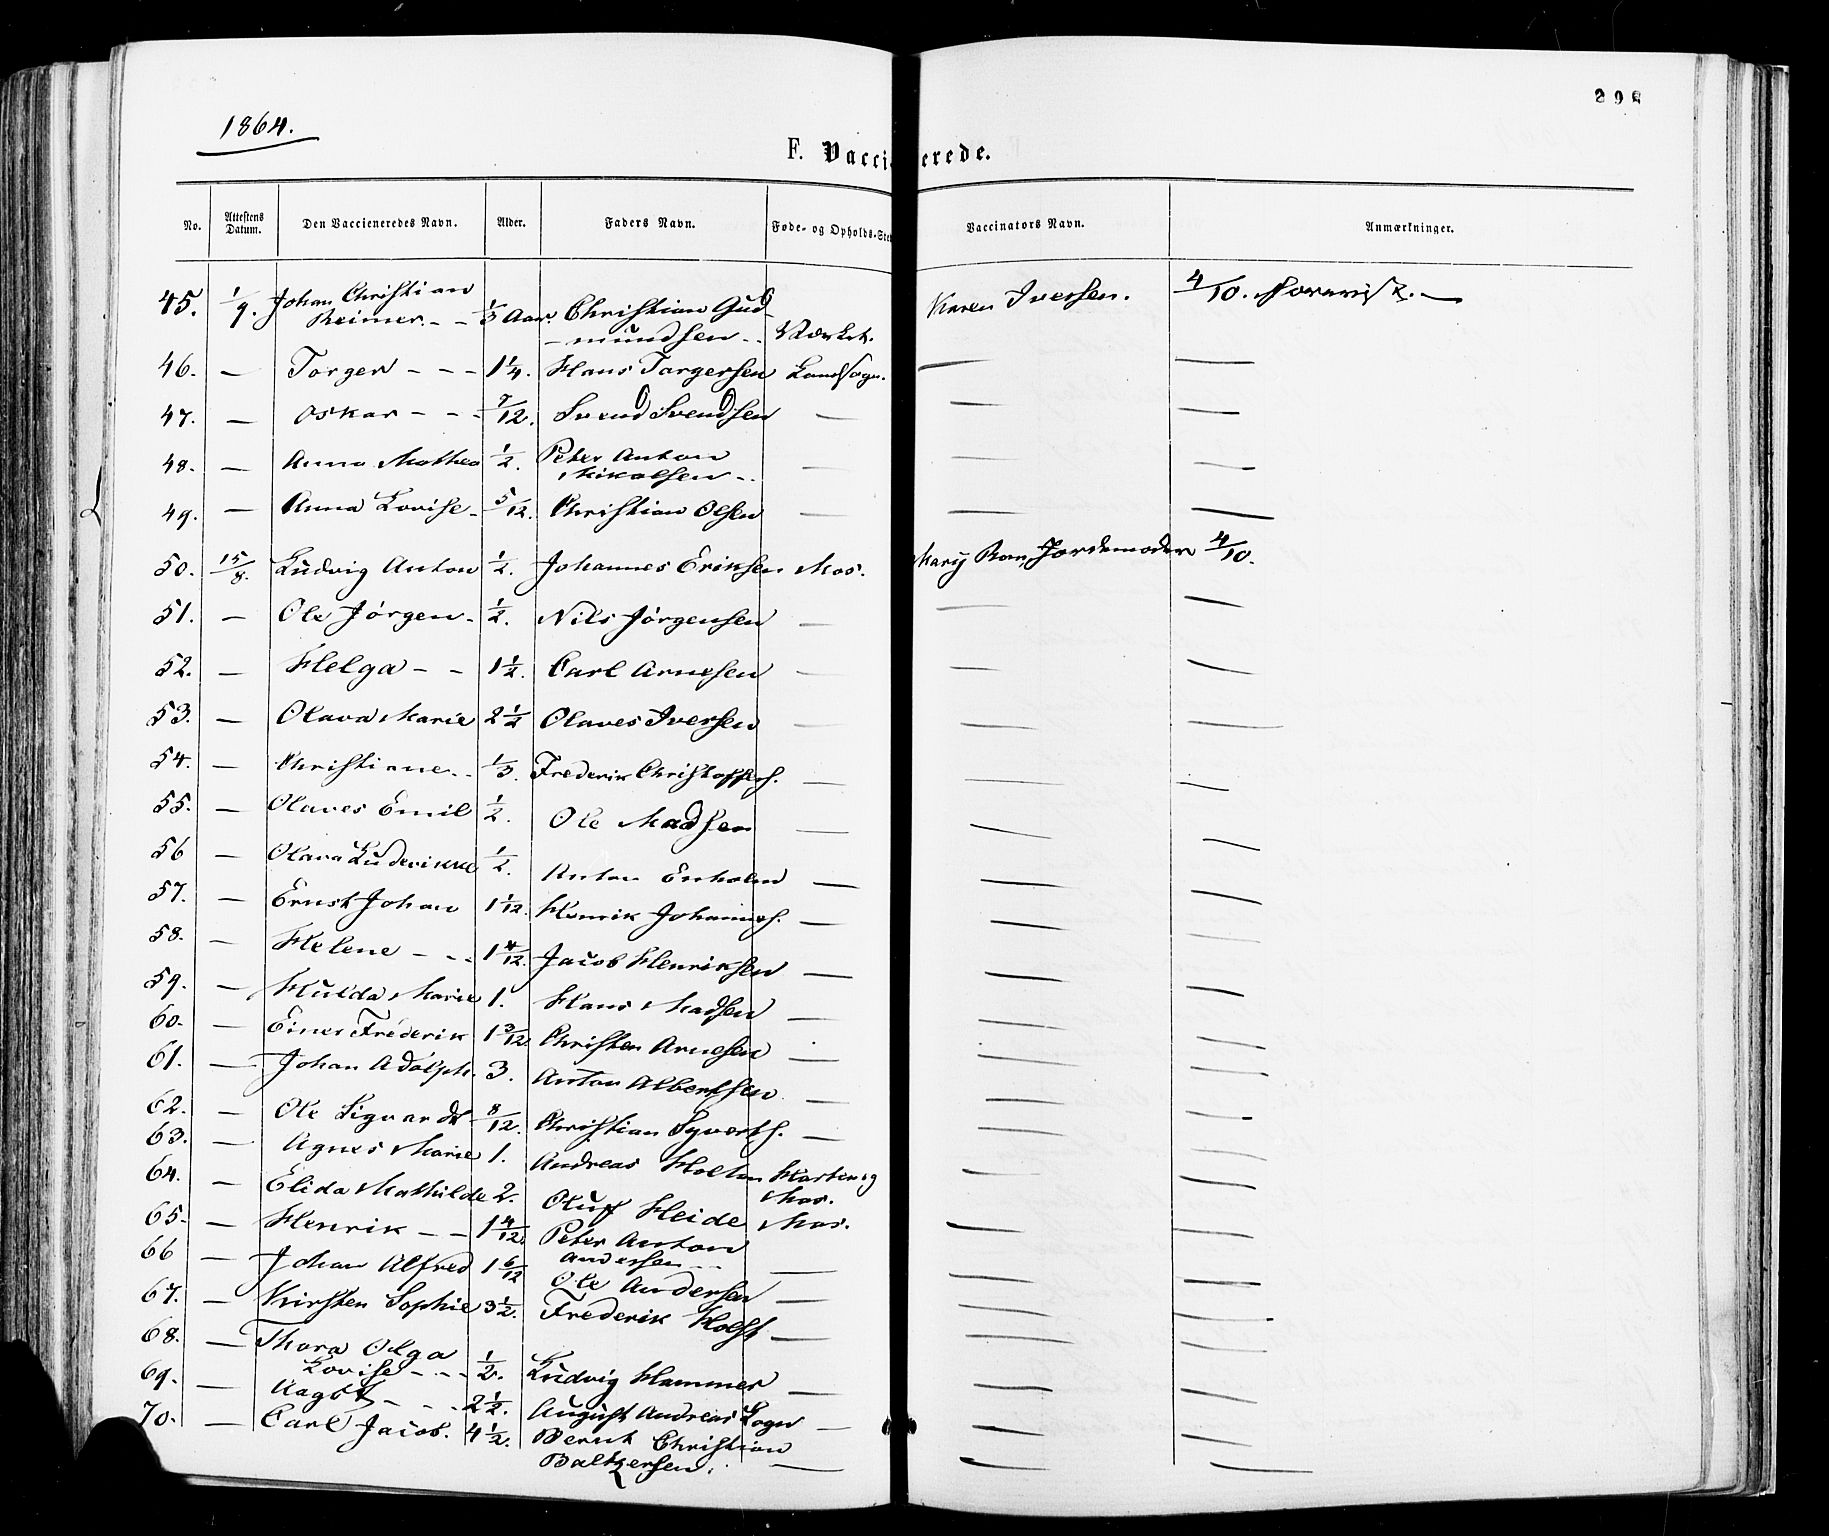 1864.
292
F. Vacci erede.
No. Attestens Datum. Den Vaccieneredes Navn. Alder. Faders Navn. Føde- og Opholds-Sted Vaccinators Navn. Anmærkninger.
45. 1/9. Johan Christian Reimer. - - 1/3 Aar. Christian Gud-mundsen - Værket. Karen Iversen. 4/10.
46. — Torger - - - 1 1/4. Hans Torgersen Landsogn. — —
47. — Oskar - - - 7/12. Svend Svendsen — — —
48. — Anna Mathea 1/2. Peter Anton Mikalsen - — — —
49. — Anna Lovise - 5/12. Christian Olsen — — —
50. 15/8. Ludvig Anton 1/2. Johannes Eriksen Mos. Jordemoder 4/10.
51. — Ole Jörgen - 1/2. Nils Jörgensen — — —
52. — Helga - - 1 1/2. Carl Arnesen — — —
53. — Olava Marie 2 1/2 Olaves Iversen — — —
54. — Christiane - - 1/3. Frederik Christoffers. — — —
55. — Olaves Emil 1/2. Ole Madsen — — —
56 — Olava Ludevikke 1/2. Anton Enholm — — —
57. — Ernst Johan 1 1/12. Henrik Johannes. — — —
58. — Helene - - - 1 4/12. Jacob Henriksen — — —
59. — Hulda Marie 1. Hans Madsen — — —
60. — Einer Frederik 1 3/12. Christen Arnesen — — —
61. — Johan Adolph. 3. Anton Albertsen — — —
62. — Ole Sigvardt 8/12. Christian Syverts. — — —
63. — Agnes Marie 1. Andreas Holten Mos. — —
64. — Elida Mathilde 2. Oluf Heide Mos. — —
65. — Henrik - - 1 4/12. Peter Anton Andersen - - — — —
66 — Johan Alfred 1 6/12 Ole Andersen — — —
67. — Kirsten Sophie 3 1/2. Frederik Holst — — —
68. — Thora Olga Lovise - - - 1/2. Ludvig Hammer — — —
69. — Aagot - - - 2 1/2. August Andreas Logn — — —
70. — Carl Jacob. 4 1/2. Bernt Christian Baltzersen. — — —